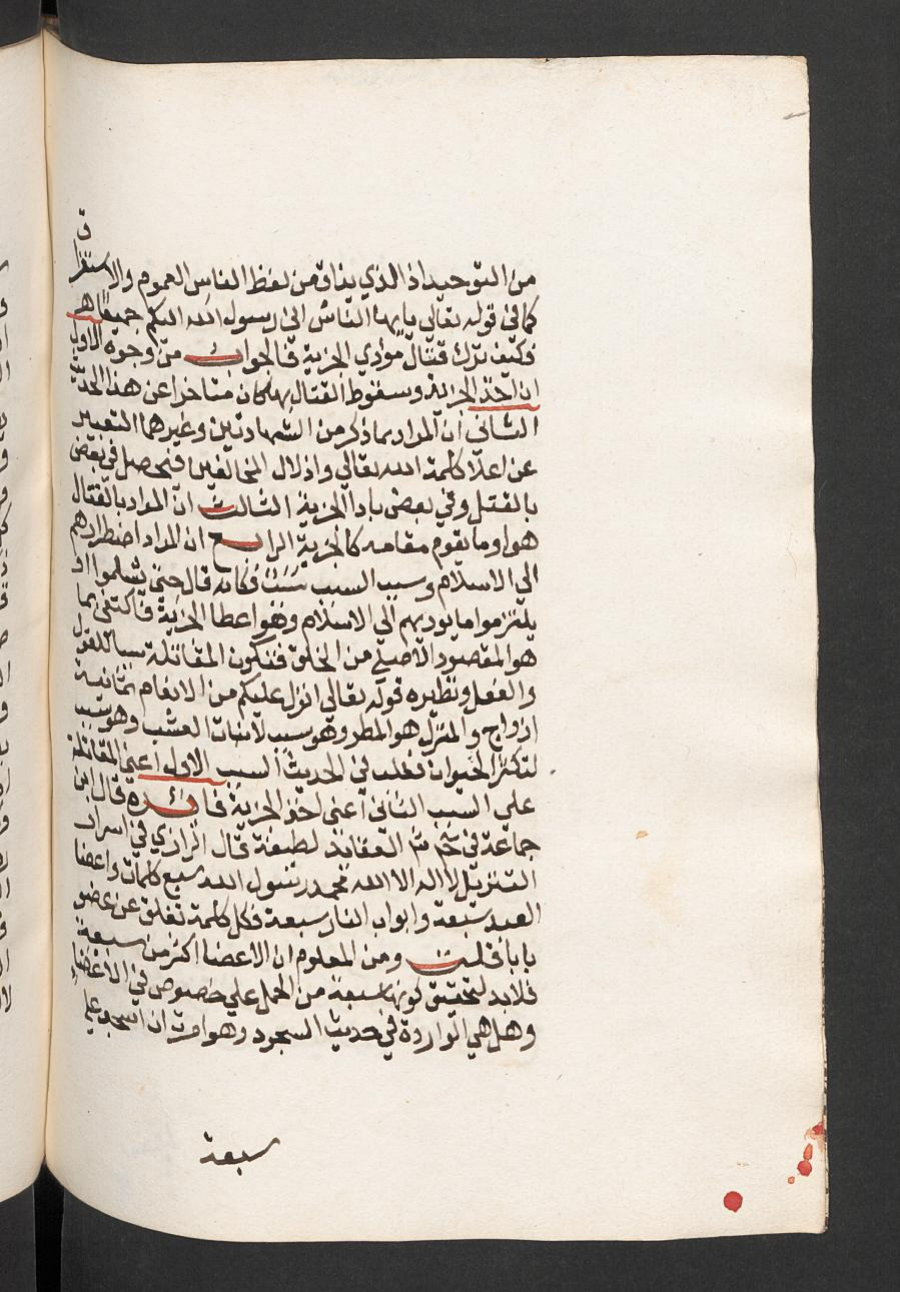 من التوحيد اذ الذي يذاق من لفظ الناس العموم والاستغراق
كما في قوله تعالي يايها الناس اني رسول الله اليكم جميعا
فكيف ترك قتال مؤدي الجزية فالجواب من وجوه الاول
ان اخذ الجزية وسقوط القتال بها كان متاخرا عن هذا الحديث
الثاني ان المراد بما ذكر من الشهادتين وغيرهما التعبير
عن اعلا كلمة الله تعالي واذلال المخالفين فتحصل في بعض
بالقتل وفي بعض باداالجزية الثالث ان المراد بالقتال
هو او ما يقوم مقامه كالجزية الرابع ان المراد اضطرارهم
الي الاسلام وسبب السبب سبب فكانه قال حتي يسلموا او
يلتزموا ما يوديهم الي الاسلام وهو اعطا الجزية فاكتفي بما
هو المقصود الاصلي من الخلق فتكون المقاتلة سببا للقول
والفعل ونظيره قوله تعالي انزل عليكم من الانعام ثمانية
ازواج والمنزل هو المطر وهو سبب لانبات العشب وهو سبب
لتكثر الحيوان فغلب في الحديث السبب الاول اعني المقاتلة
علي السبب الثاني اعني اخذ الجزية فائدة قال ابن
جماعة في العقايد لطيفة قال الرازي في اسرار
التنزيل لا اله الا الله محمد رسول الله سبع كلمات واعضا
العبد سبعة وابواب النار سبعة فكل كلمة تغلق عن عضو
بابا قلت ومن المعلوم ان الاعضا اكثر من سبعة
فلا بد لتحقيق كونها سبعة من الحمل علي خصوص في الاعضا
وهل هي الواردة في حديث السجود وهو امرت ان اسجد علي
سبعة